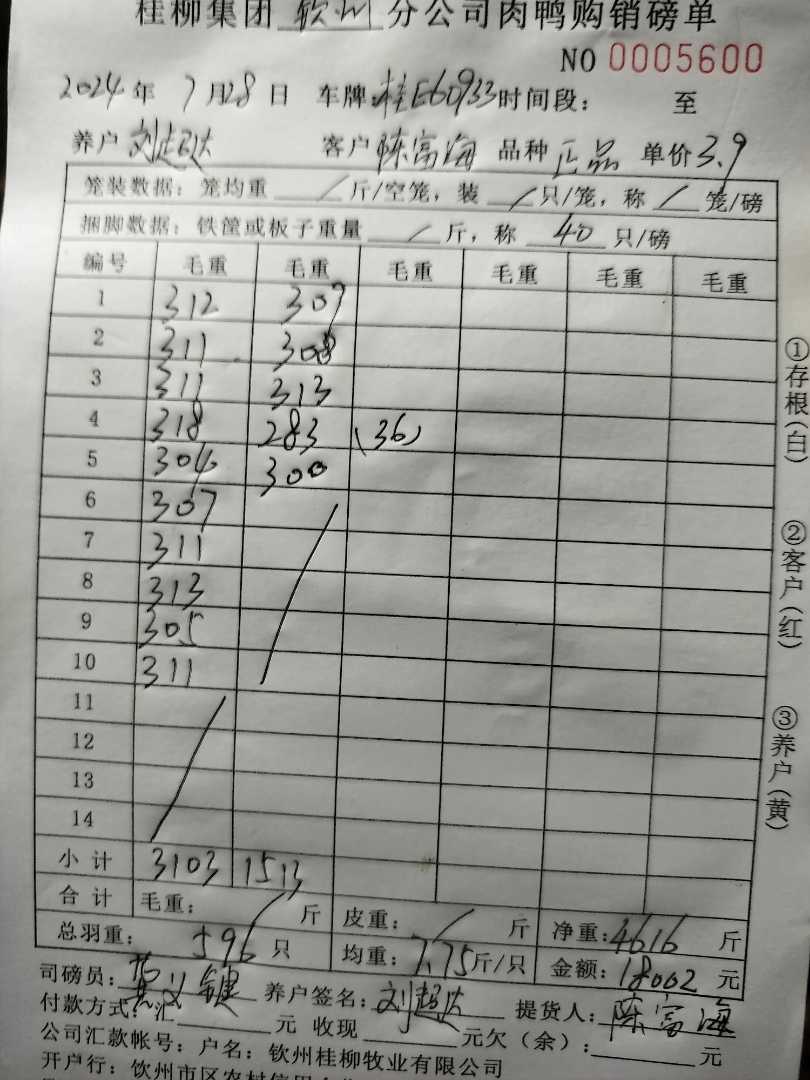 桂柳集团 钦州 分公司肉鸭购销磅单
NO 0005600
2024 年 7 月 28 日 车牌:桂E60933 时间段: 至
养户 刘超达 客户 陈富海 品种 正品 单价 3.9
笼装数据: 笼均重 / 斤/空笼, 装 / 只/笼, 称 / 笼/磅
捆脚数据: 铁筐或板子重量 / 斤, 称 40 只/磅
编号 毛重 毛重 毛重 毛重 毛重 毛重
1 312 307
2 311 308
3 311 313
4 318 283 (36)
5 304 300
6 307
7 311
8 313
9 305
10 311
11
12
13
14
小计 3103 1513
合计 毛重: / 斤 皮重: / 斤 净重: 4616 斤
总羽重: 596 只 均重: 7.75 斤/只 金额: 18002 元
司磅员: 养户签名: 刘超达 提货人: 陈富海
付款方式: 汇 元 收现 元欠(余): 元
公司汇款帐号: 户名: 钦州桂柳牧业有限公司
开户行: 钦州市区农村信用
①存根(白)
②客户(红)
③养户(黄)